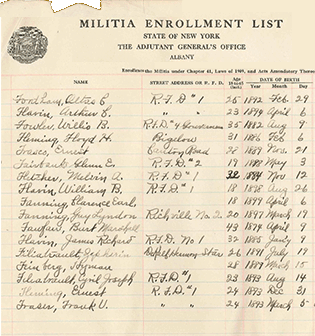 MILITIA ENROLLMENT LIST
STATE OF NEW YORK
THE ADJUTANT GENERAL'S OFFICE
ALBANY
Enroll the Militia under Chapter 41, Laws of 1909, and Acts Amendatory Thereof
NAME STREET ADDRESS OR R.F.D. Age DATE OF BIRTH
Year Month Day
Fordham, E. R.F.D #1 25 1892 Feb 29
Flavin, Arthur E. " " 23 1894 April 6
Fowler, Willis B. R.F.D #4 Gouverneur 35 1882 Aug 9
Fleming, Floyd H. Bigelow 31 1886 Feb 6
Fraser, Ernest Road 28 1889 Nov. 21
Fairbank, Glenn E. R.F.D. #2 19 May 3
Fletcher, Melvin A. R.F.D. #1 32 1884 Nov 12
Flavin, William B. R.F.D #1 18 1898 Aug 26
Fanning, Clarence Earl 18 1899 April 6
Fanning, Guy Lyndon Richville No. 2 20 1897 March 19
Burt Marshall 43 1874 April 9
Flavin, James Richard R.F.D. No 1 32 1885 July 9
Star 26 1891 July 19
Hyman 28 1889 March 15
Cyril Joseph R.F.D. #1 23 1893 Aug 14
Fleming, Ernest R.F.D. #1 24 1893 Dec 31
Fraser, Frank V. 24 1893 March 5